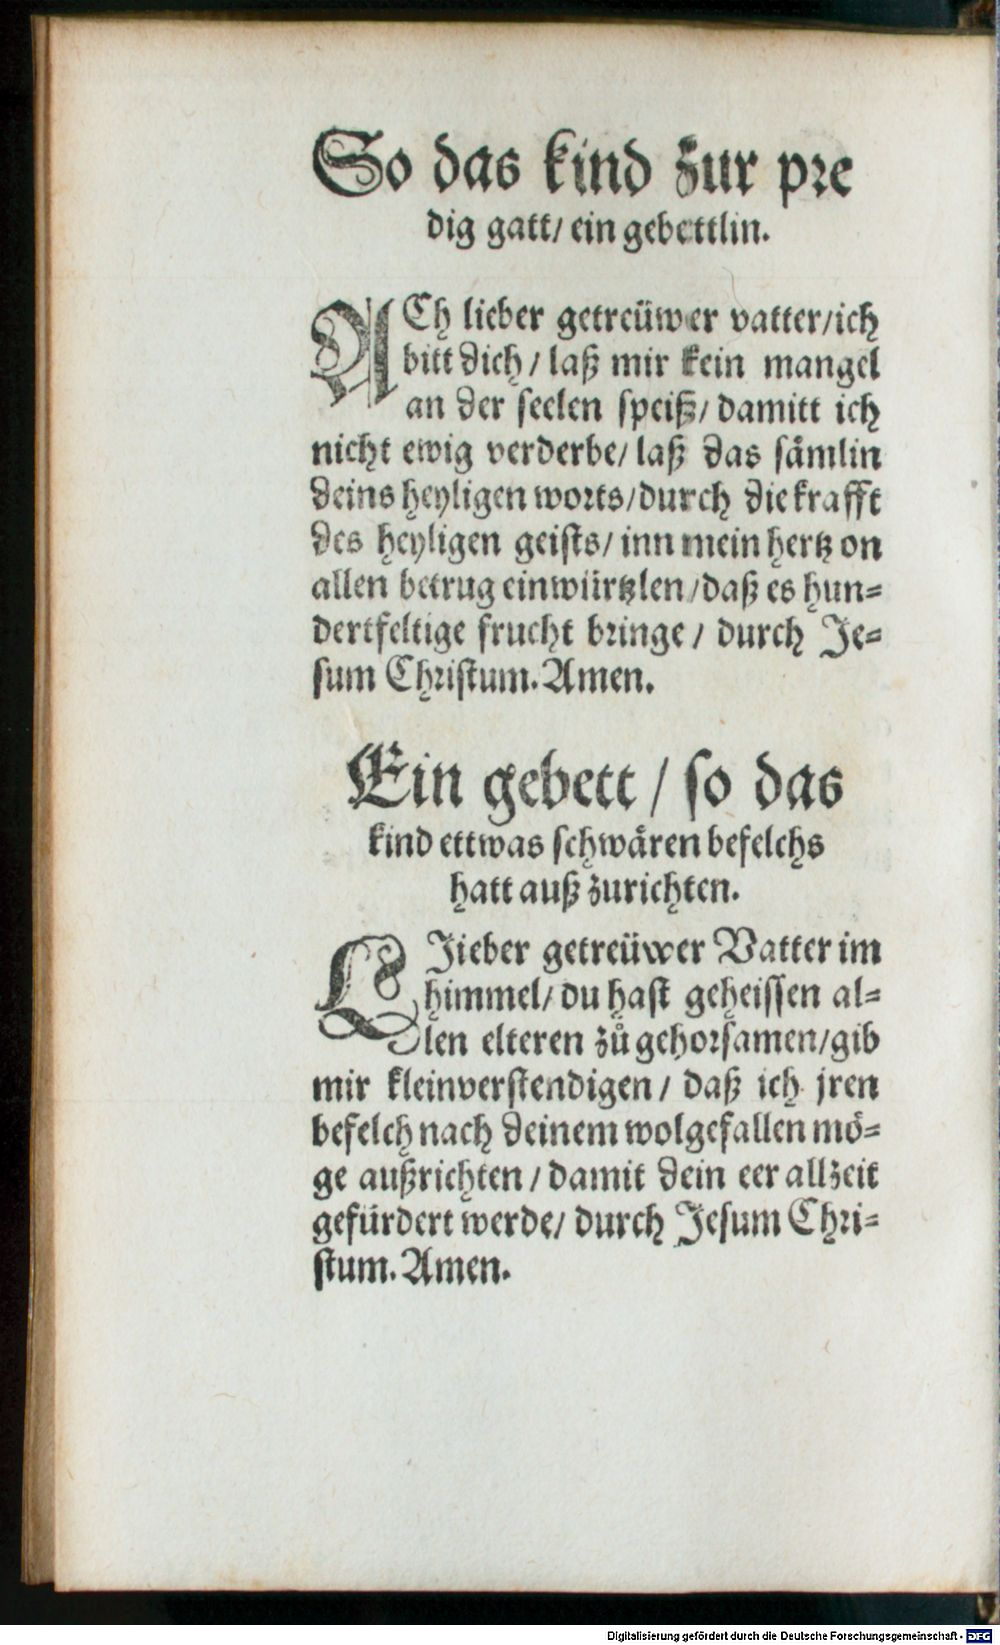 So das kind zur pre
dig gatt/ ein gebettlin.
ACh lieber getreüwer vatter/ich
bitt dich/ laß mir kein mangel
an der seelen speiß/ damitt ich
nicht ewig verderbe/ laß das sämlin
deins heyligen worts/durch die krafft
des heyligen geists/ inn mein hertz on
allen betrug einwürtzlen/daß es hun=
dertfeltige frucht bringe/ durch Je=
sum Christum. Amen.
Ein gebett/ so das
kind ettwas schwären befelchs
hatt auß zurichten.
LIieber getreüwer Vatter im
himmel/ du hast geheissen al=
len elteren zů gehorsamen/gib
mir kleinverstendigen/ daß ich jren
befelch nach deinem wolgefallen mö=
ge außrichten/ damit dein eer allzeit
gefürdert werde/ durch Jesum Chri=
stum. Amen.
Digitalisierung gefördert durch die Deutsche Forschungsgemeinschaft - DFG